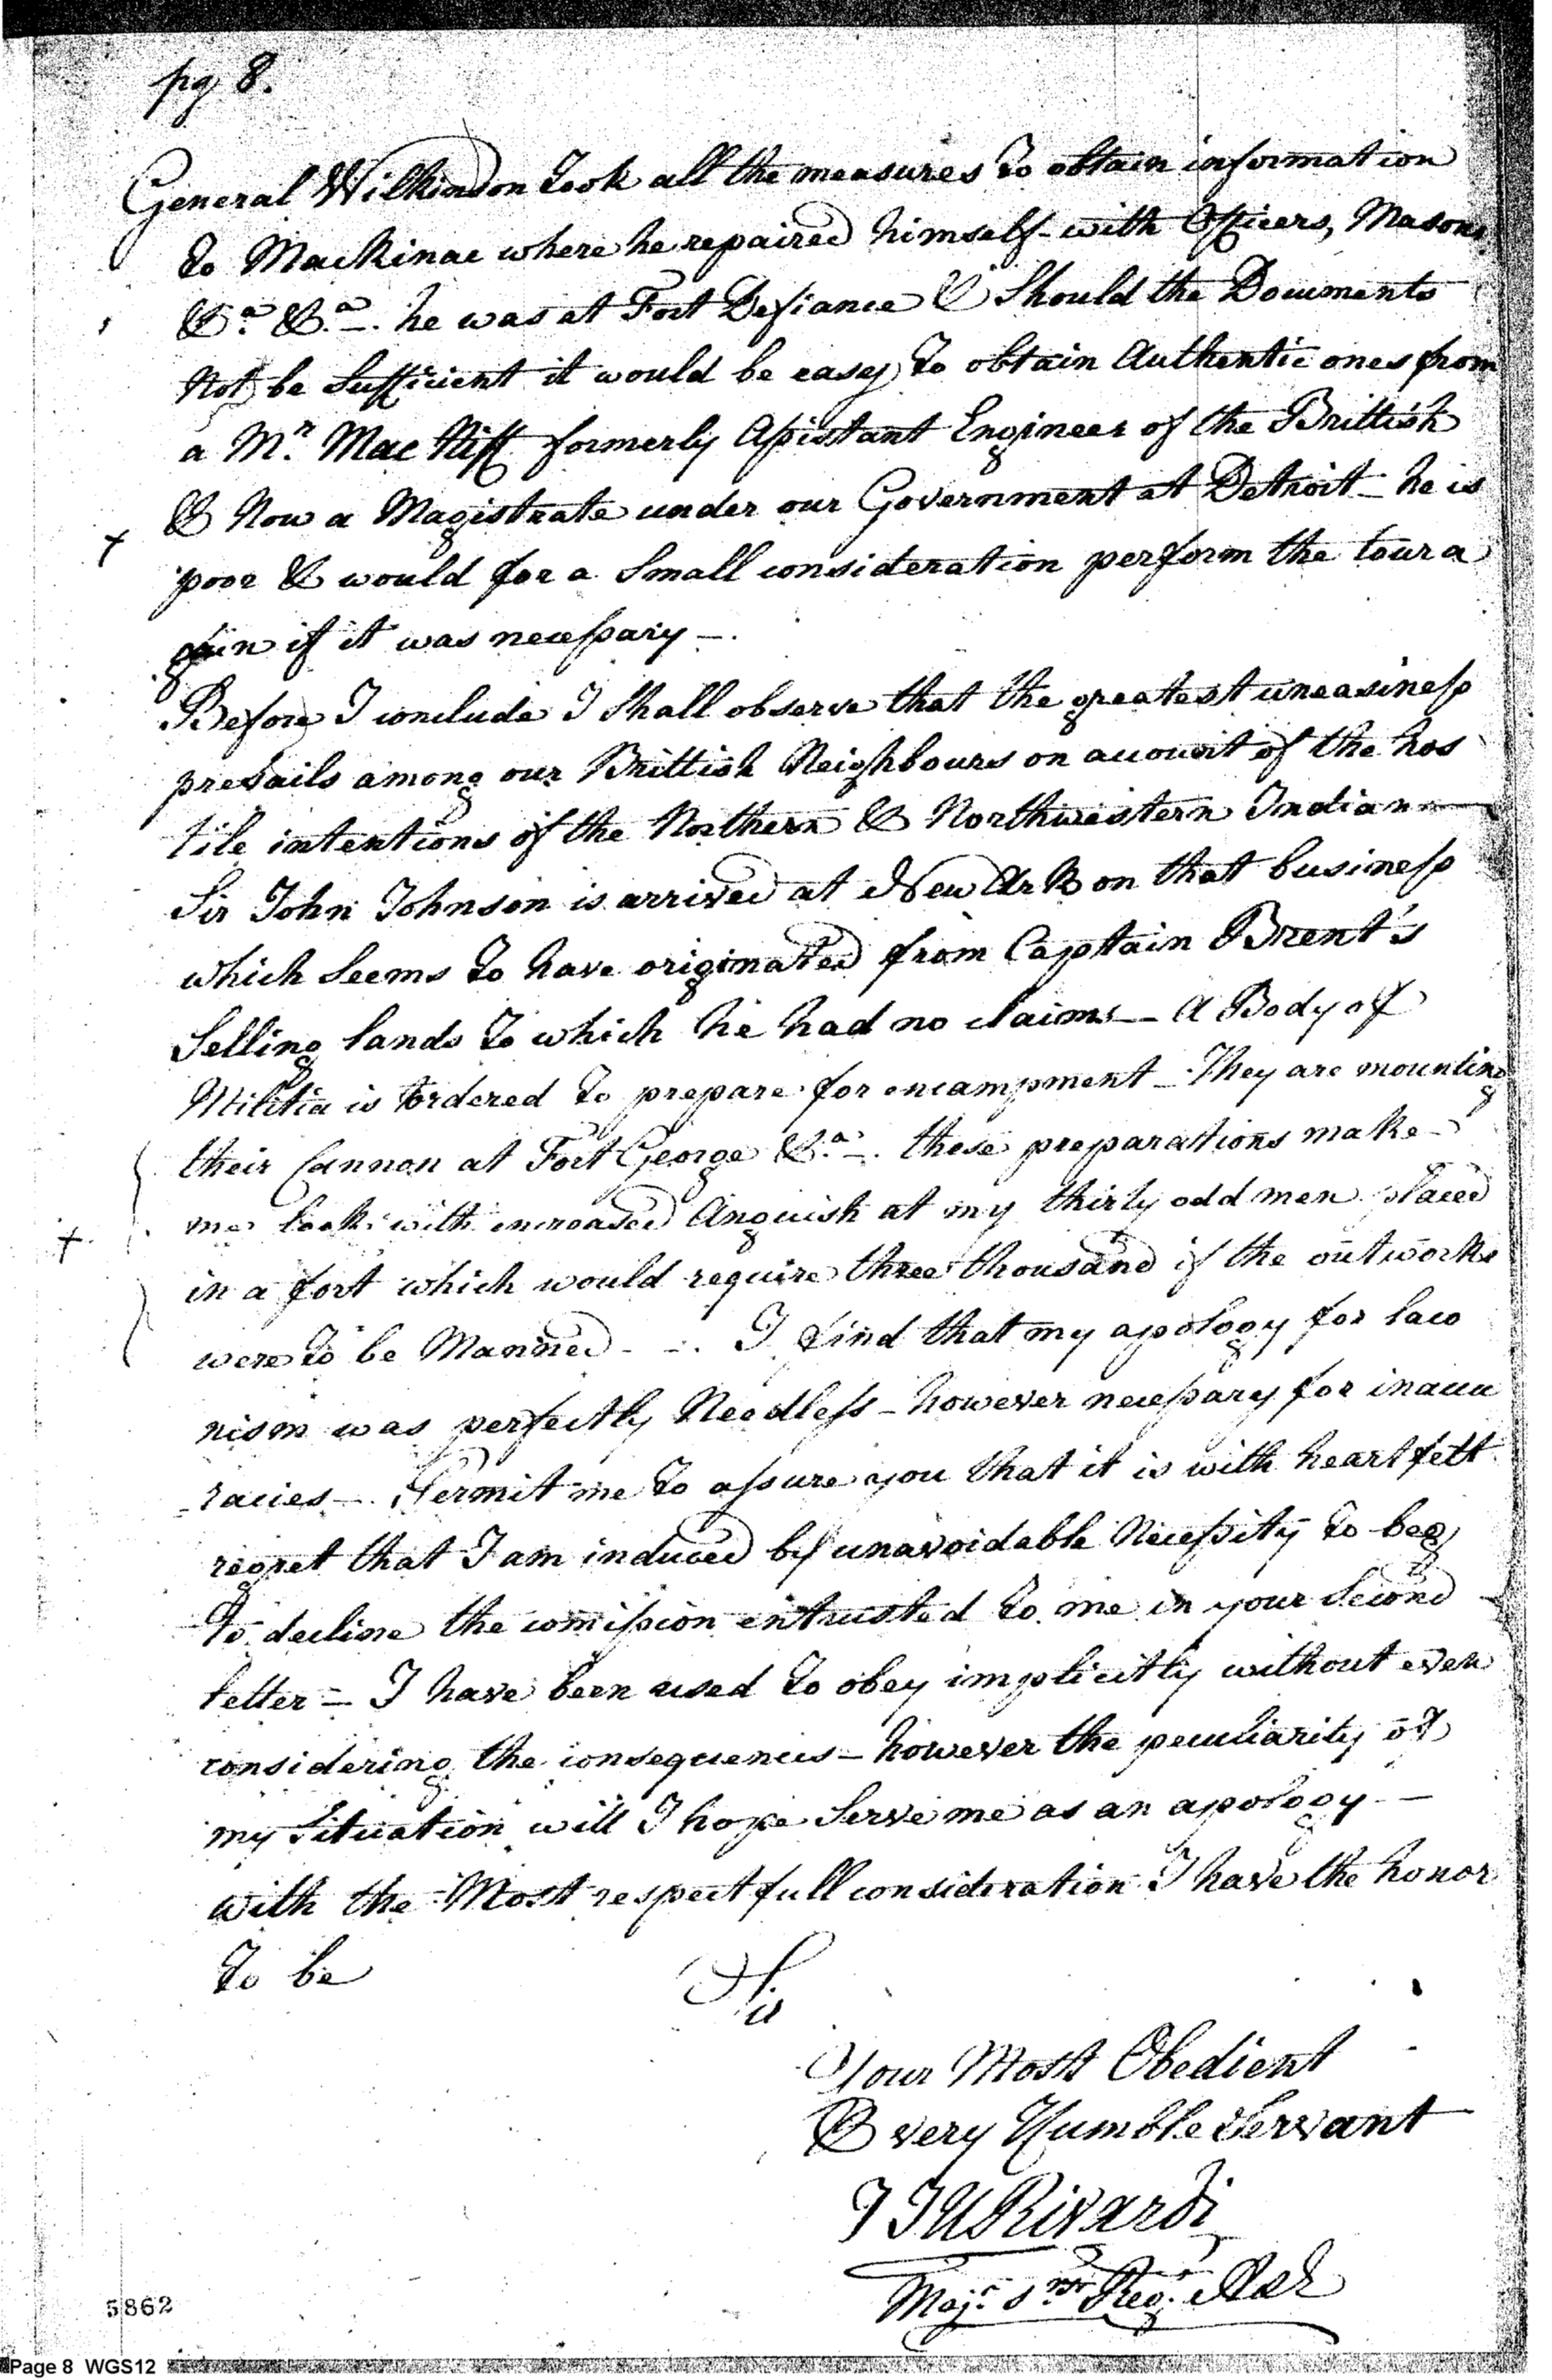 pg 8.
General Wilkinson took all the measures to obtain information
to Mackinac where he repaired himself with Officers, Masons
&.a &.a he was at Fort Defiance & Should the Documents
Not be Sufficient it would be easy to obtain Authentic ones from
a Mr. Mac Niff formerly Assistant Engineer of the Brittish
& Now a Magistrate under our Government at Detroit - he is
poor & would for a Small consideration perform the tour a
gain if it was necessary -.
Before I conclude I Shall observe that the greatest uneasiness
prevails among our Brittish Neighbours on account of the hos
tile intentions of the Northern & Northwestern Indians
Sir John Johnson is arrived at NewArk on that business
which Seems to have originated from Captain Brent's
Selling lands to which he had no claims - A Body of
Militia is ordered to prepare for encampment - They are mounting
their Cannon at Fort George &.a these preparations make
me look with increased Anguish at my thirty odd men placed
in a fort which would require three thousand if the outworks
were to be Manned - I find that my apology for laco
nism was perfectly Needless - however necessary for inaccu
racies -. Permit me to assure you that it is with heartfelt
regret that I am induced by unavoidable Necessity to beg
to decline the comission entrusted to me in your Second
letter = I have been used to obey implicitly without even
considering the consequences - however the peculiarity of
my Situation will I hope Serve me as an apology -
with the Most respectfull consideration I have the honor
to be
Sir
Your Most Obedient
& very Humble Servant
J J U Rivardi
Majr. 1st Regt. A&E
5862
Page 8 WGS12